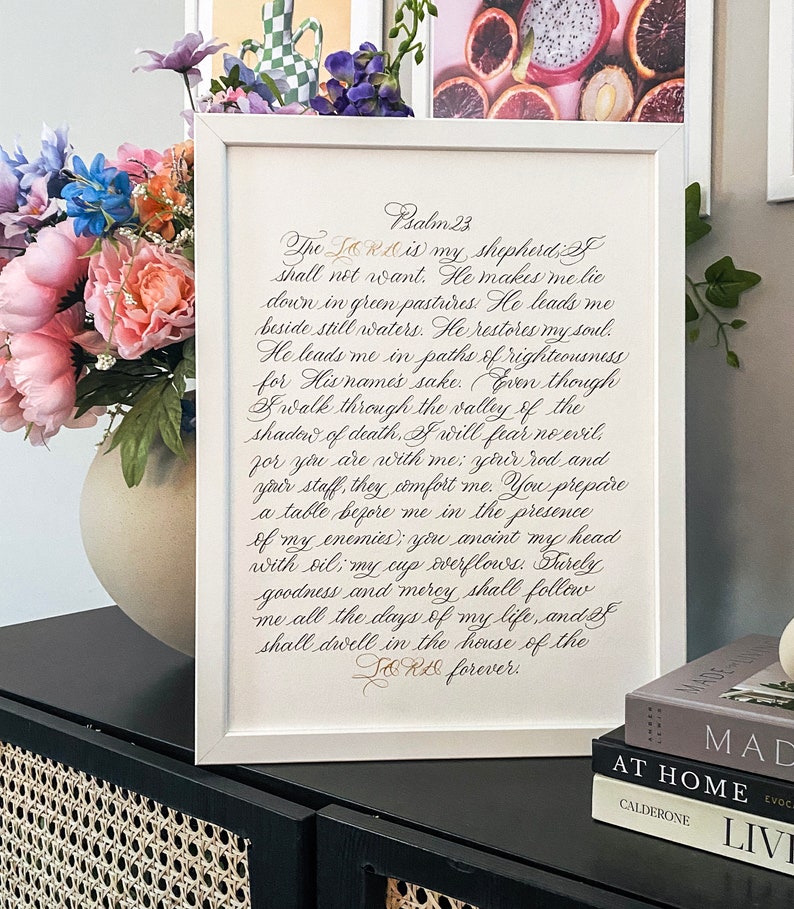 Psalm 23
The LORD is my shepherd; I
shall not want. He makes me lie
down in green pastures. He leads me
beside still waters. He restores my soul.
He leads me in paths of righteousness
for His name's sake. Even though
I walk through the valley of the
shadow of death, I will fear no evil,
for you are with me; your rod and
your staff, they comfort me. You prepare
a table before me in the presence
of my enemies; you anoint my head
with oil; my cup overflows. Surely
goodness and mercy shall follow
me all the days of my life, and I
shall dwell in the house of the
LORD forever.
MADE
AMBER LEWIS
MAD
AT HOME EVOCA
CALDERONE LIVI